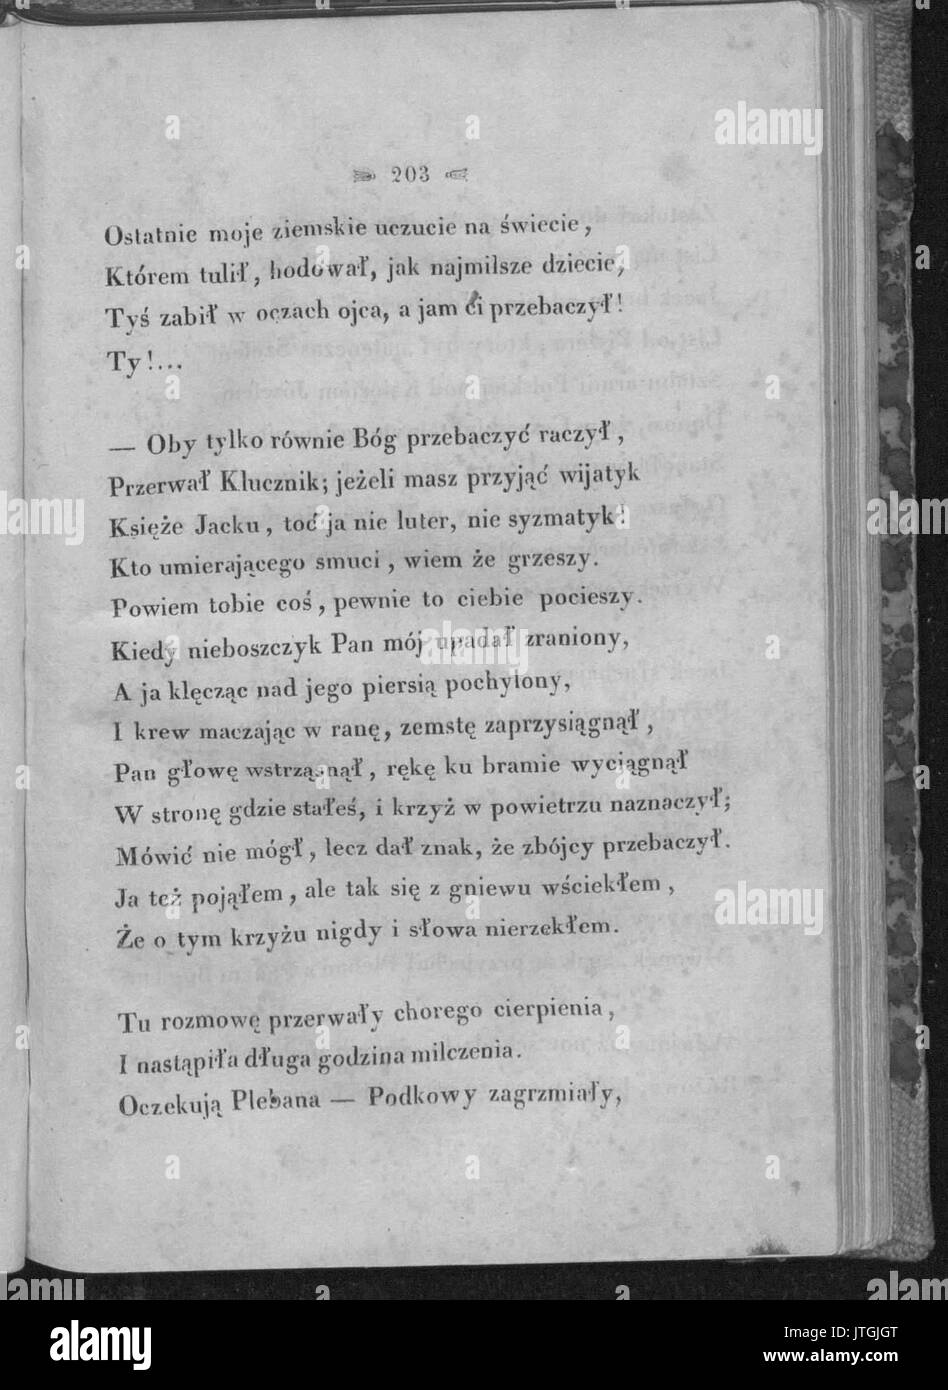 203
Ostatnie moje ziemskie uczucie na świecie,
Którem tulił, hodował, jak najmilsze dziecie,
Tyś zabił w oczach ojca, a jam ci przebaczył!
Ty!...
— Oby tylko równie Bóg przebaczyć raczył,
Przerwał Klucznik; jeżeli masz przyjąć wijatyk
Księże Jacku, toć ja nie luter, nie syzmatyk!
Kto umierającego smuci, wiem że grzeszy.
Powiem tobie coś, pewnie to ciebie pocieszy.
Kiedy nieboszczyk Pan mój upadał zraniony,
A ja klęcząc nad jego piersią pochylony,
I krew maczając w ranę, zemstę zaprzysiągnął,
Pan głowę wstrząsnął, rękę ku bramie wyciągnął
W stronę gdzie stałeś, i krzyż w powietrzu naznaczył;
Mówić nie mógł, lecz dał znak, że zbójcy przebaczył.
Ja też pojąłem, ale tak się z gniewu wściekłem,
Że o tym krzyżu nigdy i słowa nierzekłem.
Tu rozmowę przerwały chorego cierpienia,
I nastąpiła długa godzina milczenia.
Oczekują Plebana — Podkowy zagrzmiały,
alamy
Image ID: JTGJGT
www.alamy.com